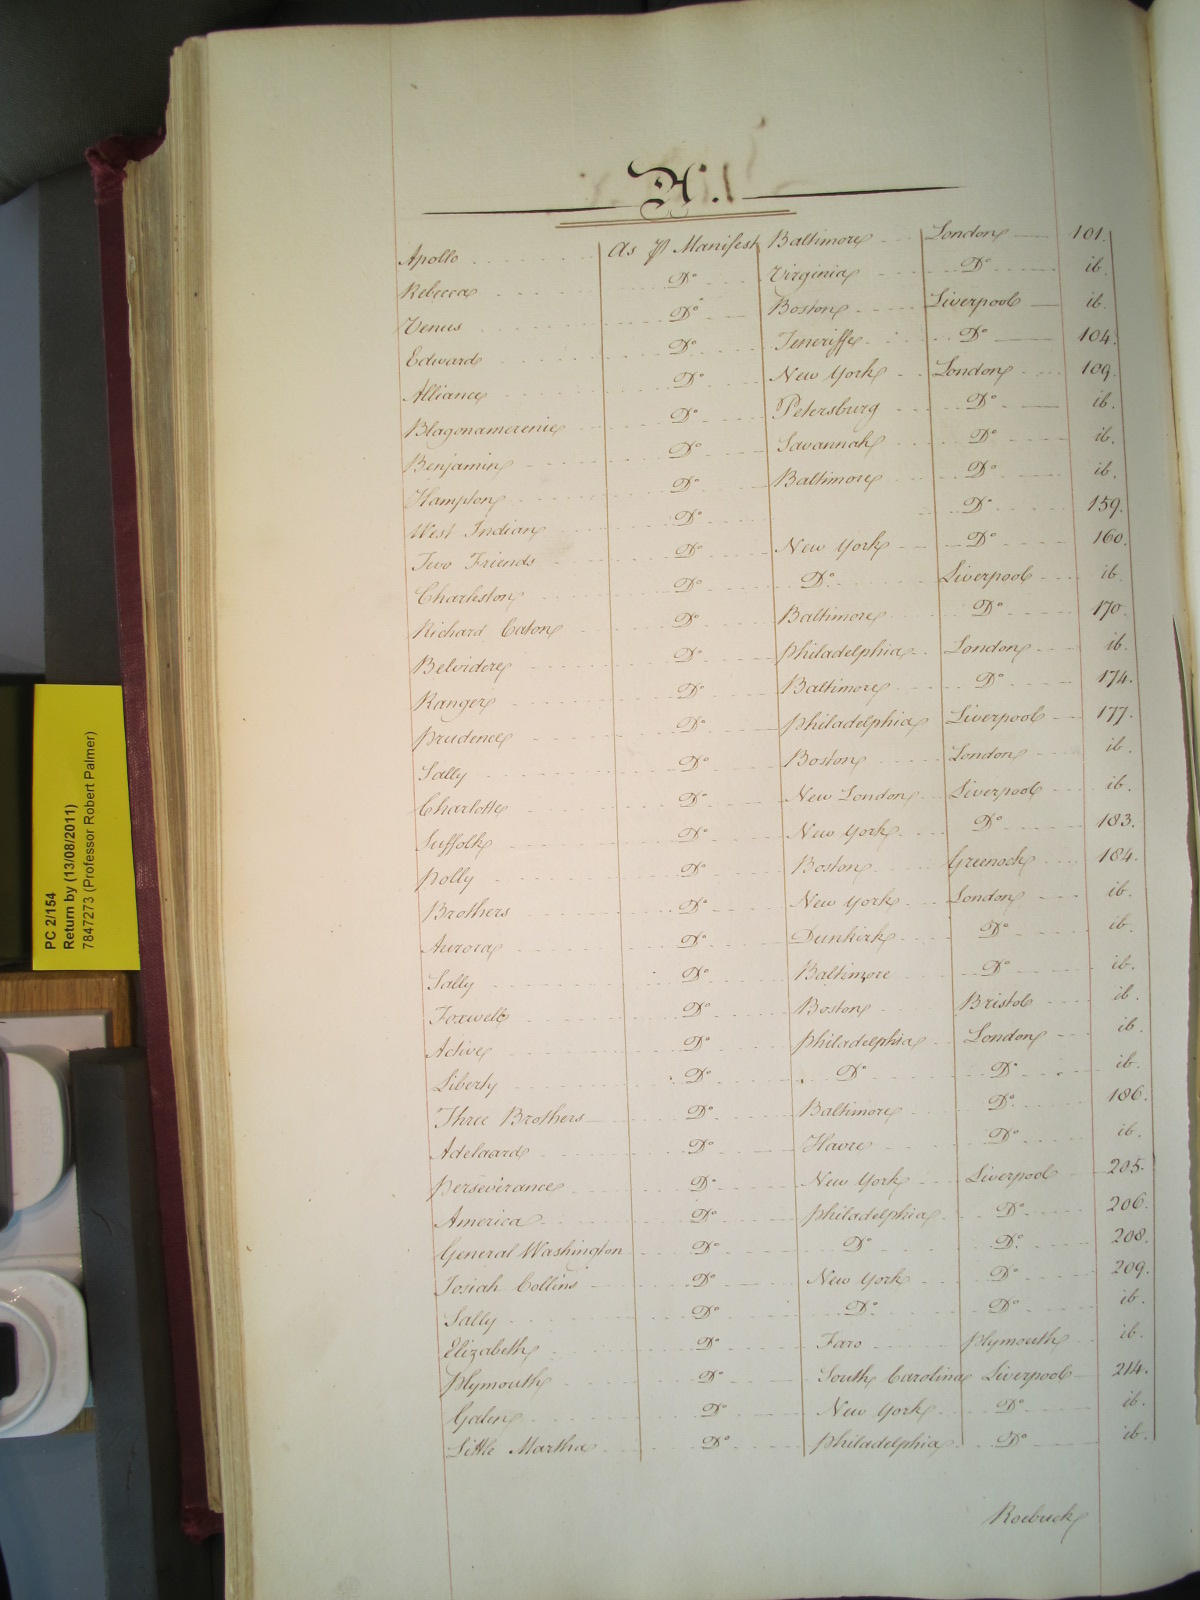 A.
Apollo As ⅌ Manifest Baltimore London 101.
Rebecca Do Virginia Do ib.
Venus Do Boston Liverpool ib.
Edward Do Teneriffe Do 104.
Alliance Do New York London 109.
Blagonamerenie Do Petersburg Do ib.
Benjamin Do Savannah Do ib.
Hampton Do Baltimore Do ib.
West Indian Do Do 159.
Two Friends Do New York Do 160.
Charleston Do Do Liverpool ib.
Richard Caton Do Baltimore Do 170.
Belvidere Do Philadelphia London ib.
Ranger Do Baltimore Do 174.
Prudence Do Philadelphia Liverpool 177.
Sally Do Boston London ib.
Charlotte Do New London Liverpool ib.
Suffolk Do New York Do 183.
Polly Do Boston Greenock 184.
Brothers Do New York London ib.
Aurora Do Dunkirk Do ib.
Sally Do Baltimore Do ib.
Foxwell Do Boston Bristol ib.
Active Do Philadelphia London ib.
Liberty Do Do Do ib.
Three Brothers Do Baltimore Do 186.
Adelaard Do Havre Do ib.
Perseverance Do New York Liverpool 205.
America Do Philadelphia Do 206.
General Washington Do Do Do 208.
Josiah Collins Do New York Do 209.
Sally Do Do Do ib.
Elizabeth Do Faro Plymouth ib.
Plymouth Do South Carolina Liverpool 214.
Galen Do New York Do ib.
Little Martha Do Philadelphia Do ib.
Roebuck
PC 2/154
Return by (13/08/2011)
7847273 (Professor Robert Palmer)